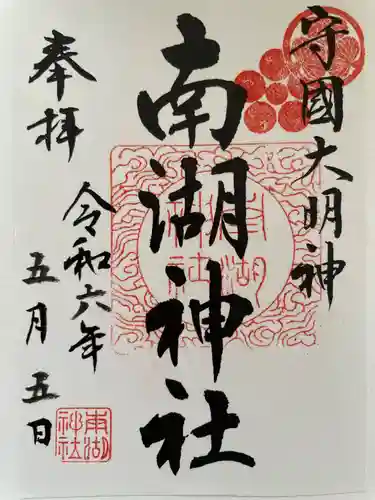 守國大明神
南湖神社
奉拝
令和六年
五月五日
南湖
神社
南湖
神社